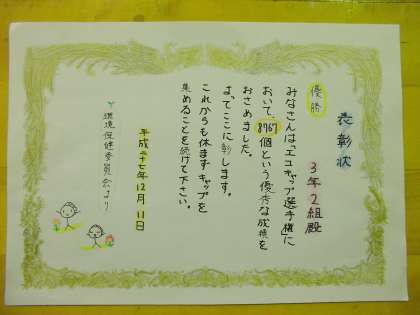 表彰状
3年2組殿
優勝
みなさんは「エコキャップ選手権」に
おいて、8767個という優秀な成績を
おさめました。
よってここに彰します。
これからも休まずキャップを
集めることを続けて下さい。
平成二十七年12月11日
環境保健委員会より